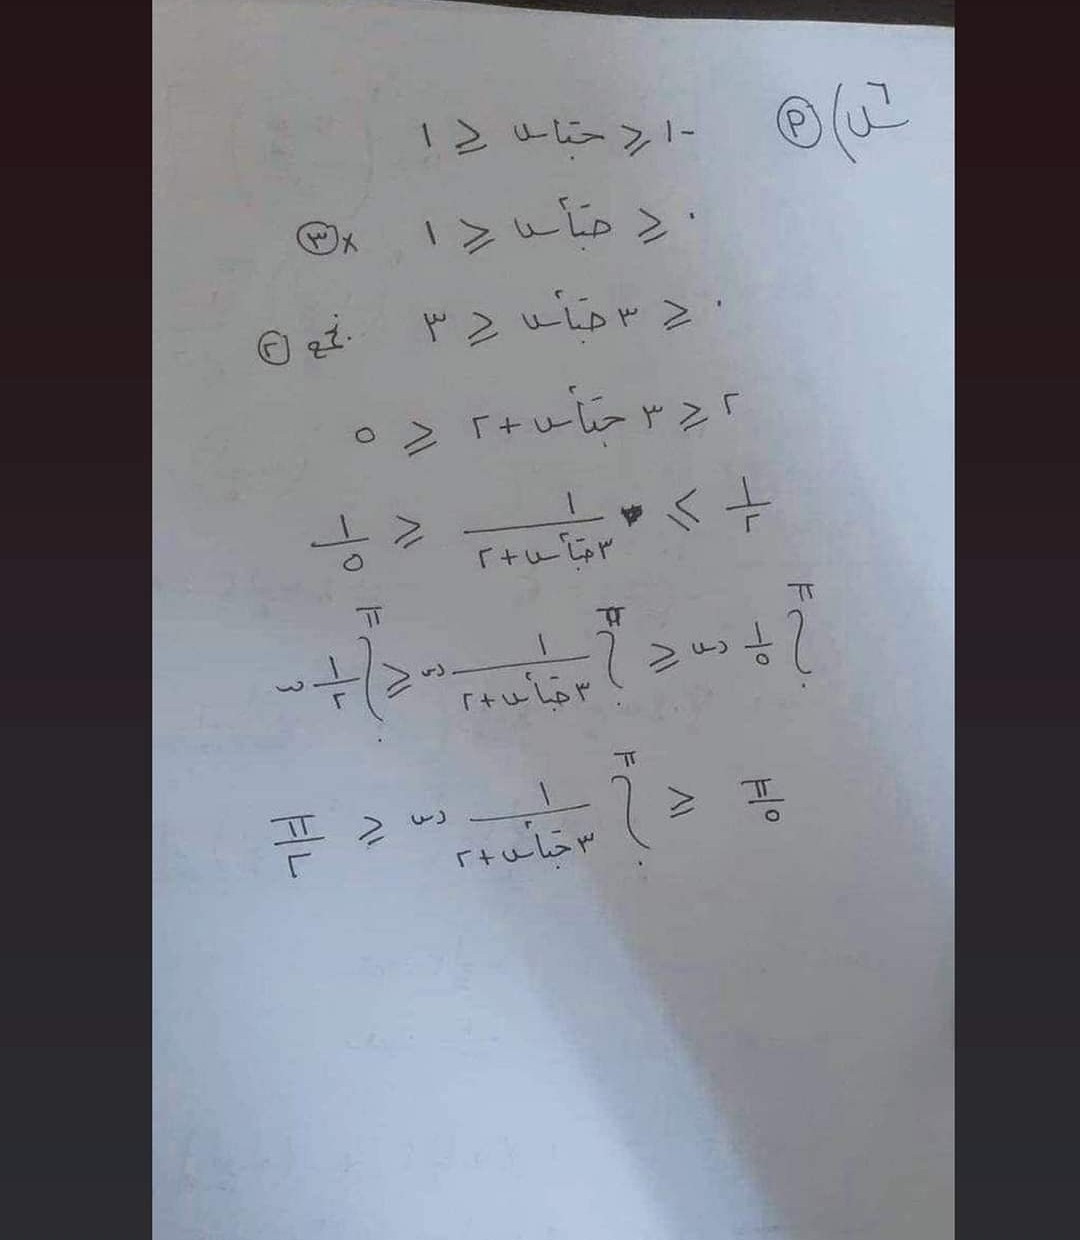 س٦) (م) -١ ≤ جتاس ≤ ١
٠ ≤ جتا٢س ≤ ١ ×(٣)
٠ ≤ ٣ جتا٢س ≤ ٣ نجمع (٢)
٢ ≤ ٣ جتا٢س + ٢ ≤ ٥
١/٢ ≥ ١/(٣ جتا٢س + ٢) ≥ ١/٥
∫٠^π ١/٥ دس ≤ ∫٠^π ١/(٣ جتا٢س + ٢) دس ≤ ∫٠^π ١/٢ دس
π/٥ ≤ ∫٠^π ١/(٣ جتا٢س + ٢) دس ≤ π/٢